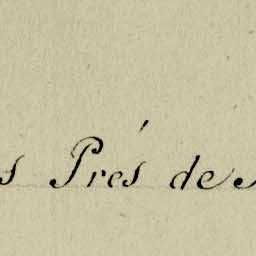 s Prés de